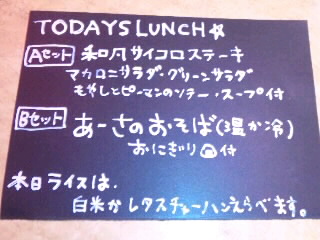 TODAYS LUNCH☆
Aセット 和風サイコロステーキ
マカロニサラダ・グリーンサラダ
もやしとピーマンのソテー・スープ付
Bセット あーさのおそば(温か冷)
おにぎり🍙付
本日ライスは、
白米かレタスチャーハンえらべます。